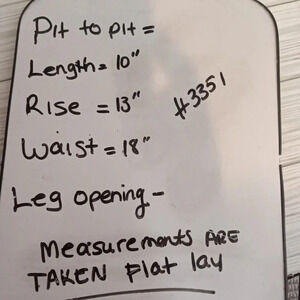 Pit to pit =
Length = 10"
Rise = 13"
#3351
Waist = 18"
Leg opening -
Measurements ARE
TAKEN flat lay